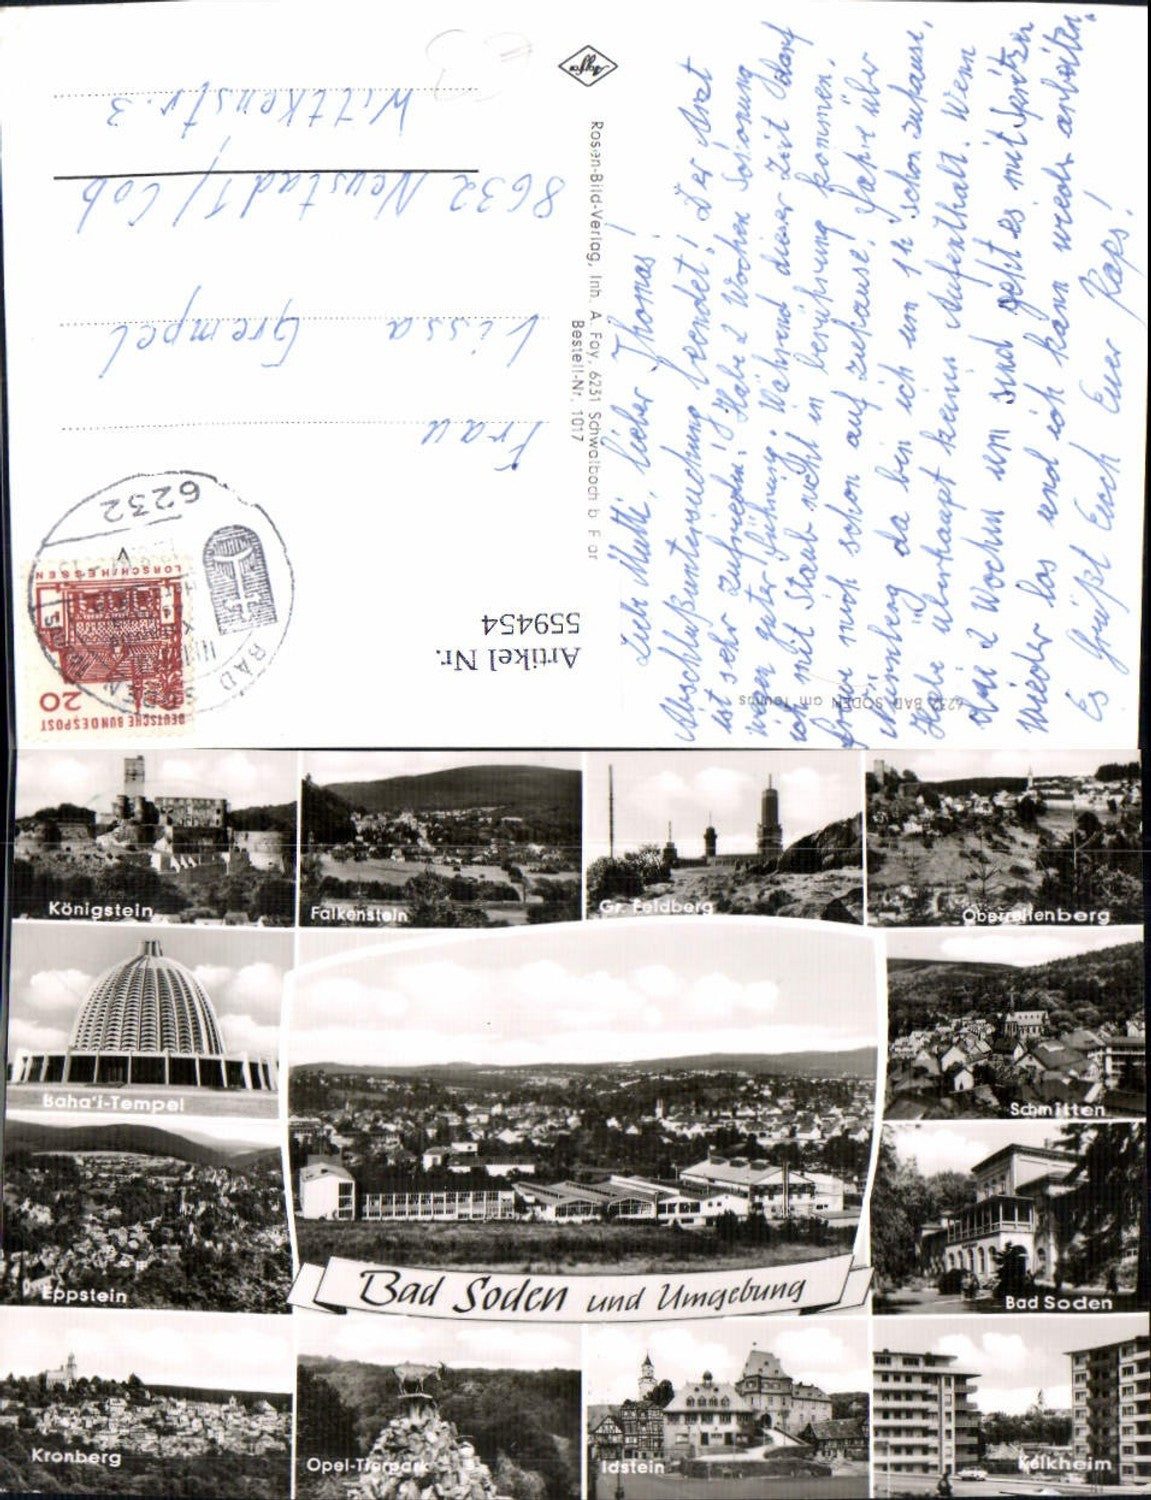 Liebe Mutti, lieber Thomas!
Abschlußuntersuchung beendet! Der Arzt
ist sehr zufrieden! Habe 2 Wochen Schonung
guter Führung. Während dieser Zeit darf
ich mit Staub nicht in berührung kommen.
Freue mich schon auf zuhause! Fahre über
Nürnberg da bin ich um 1h schon zuhause,
Habe überhaupt keinen Aufenthalt. Wenn
2 Wochen um sind geht es mit
wieder los und ich kann wieder arbeiten.
Es Grüßt Euch Euer
6232 BAD SODEN am Taunus
Artikel Nr.
559454
Agfa
Rosen-Bild-Verlag, Inh. A. Fay, 6231 Schwalbach b. F
Bestell-Nr. 1017
DEUTSCHE BUNDESPOST
20
LORSCH/HESSEN
6232
BAD SODEN
Frau
Lissa Grempel
8632 Neustadt/Cob
Wittkenstr. 3
Königstein
Falkenstein
Gr. Feldberg
Oberreifenberg
Baha'i-Tempel
Schmitten
Eppstein
Bad Soden und Umgebung
Bad Soden
Kronberg
Opel-Tierpark
Idstein
Kelkheim